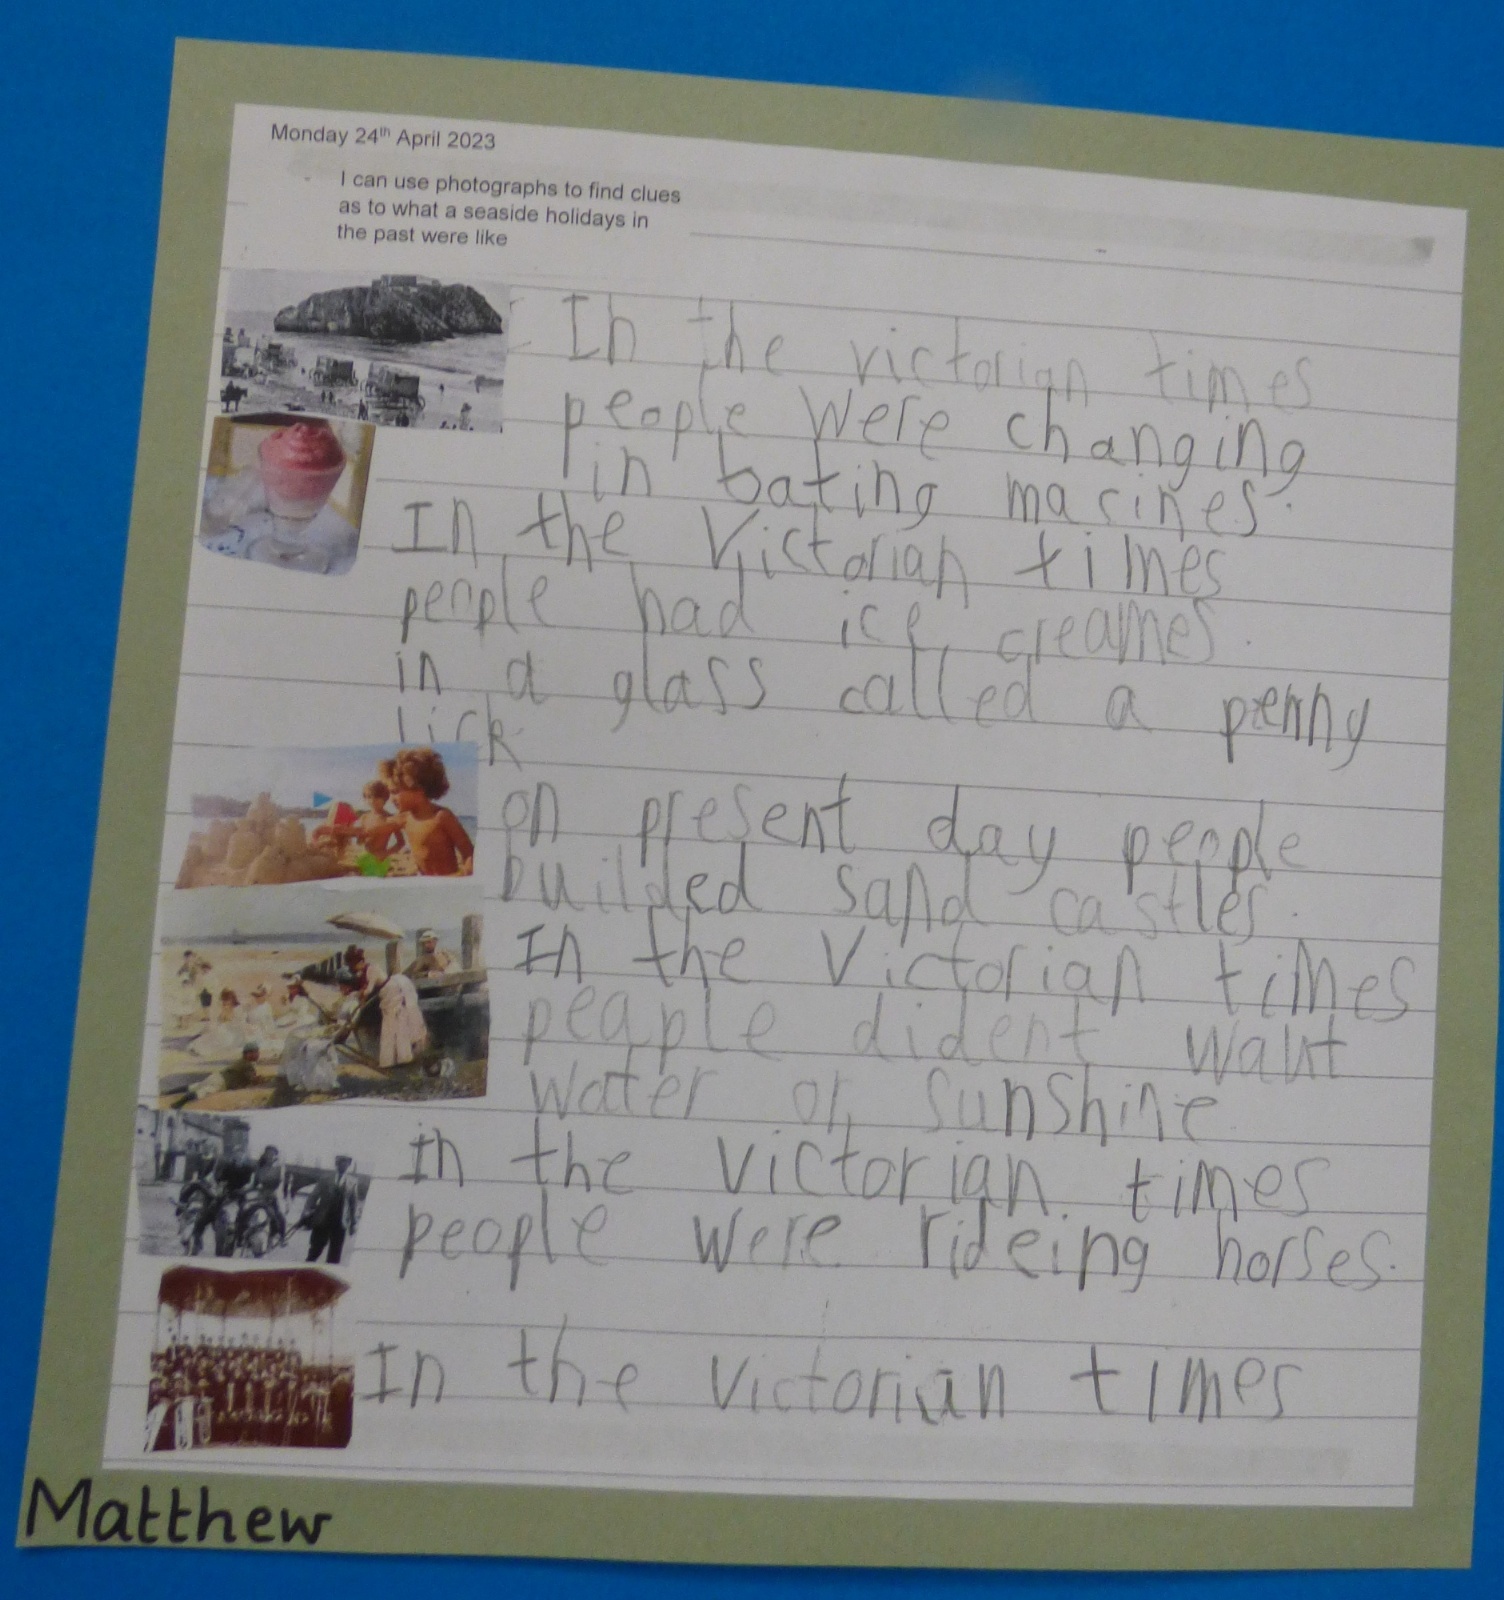 Monday 24th April 2023
I can use photographs to find clues
as to what a seaside holidays in
the past were like
In the victorian times
people were changing
in bating macines.
In the Victorian times
people had ice creames.
in a glass called a penny
lick
on present day people
builded sand castles.
In the Victorian times
peaple dident want
water or sunshine
in the victorian times
people were rideing horses.
In the victorian times
Matthew